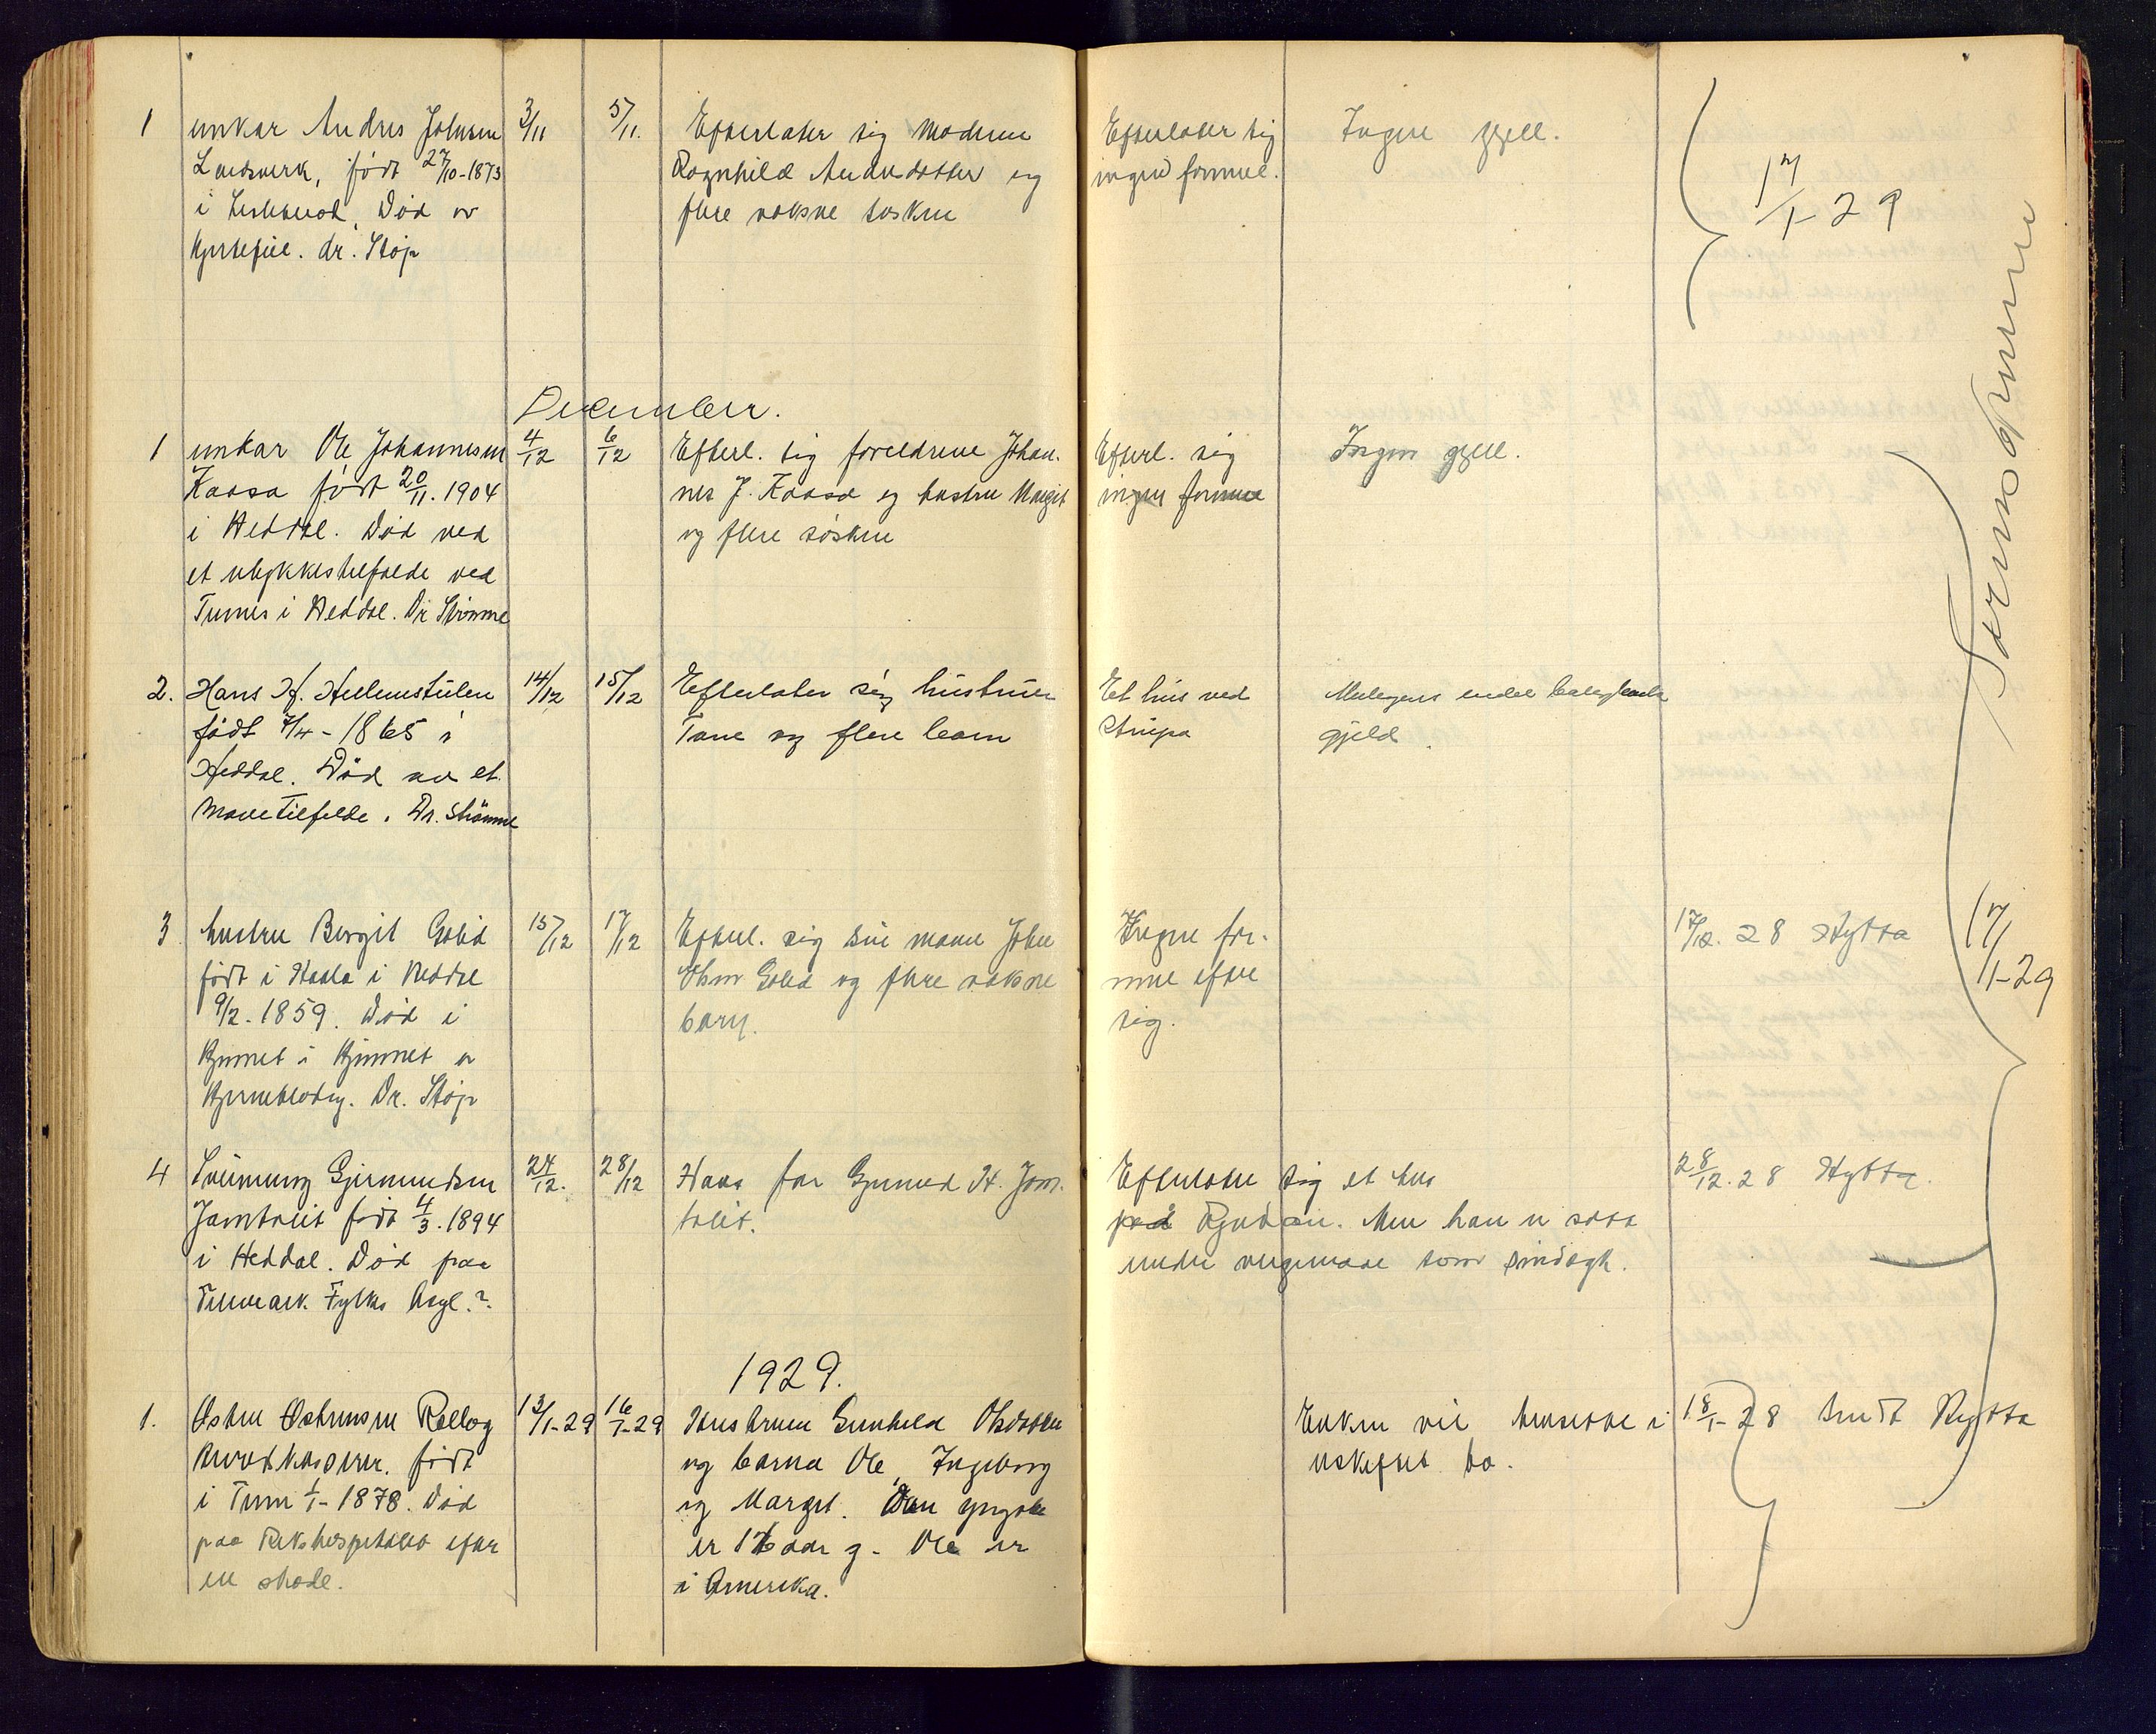 1 unkar Andres Johnsen 3/11 5/11. Efterlater sig moderen Efterlater sig Ingen gjell.
Landsverk, født 27/10-1873 Ragnhild Andresdotter og ingen formue.
i Lisleherad, Død av flere voksne søsken
Hjertefeil. dr. Støp
17/1-29
December.
1 unkar Ole Johannesen 4/12 6/12 Efterl. sig foreldrene Johan- Efterl. sig Ingen gjell.
Kaasa født 20/11. 1904 nes J. Kaasa og hustru Margit ingen formue
i Heddal. Død ved og flere søsken
et ulykkestilfelde ved
Tinnes i Heddal. Dr Strømme
2. Hans H. Hellemstulen 14/12 15/12 Efterlater sig hustruen Et hus ved Muligens endel
født 7/4-1865 i Tone og flere barn gjeld
Heddal. Død av et
Mavetilfelde. Dr. Strømme
3 hustru Bergit Goli 15/12 17/12 Efterl. sig sin mann John Ingen for- 17/12. 28 Hytta
født i Hasla i Heddal Olsen og flere voksne mue efter
9/2. 1859. Død i barn. sig.
Hjemmet i Hjemmet av
Hjerneblødn. Dr. Støp
17/1-29
4 Sveinung Gjermundsen 24/12. 28/12 Hans far Gjermund H. Jam- Efterlater sig et hus 28/12. 28 Hytta.
Jamtveit født 4/3. 1894 tveit. paa Rjukan. Men han er satt
i Heddal. Død paa under vergemaal som sindsyk.
Telemark Fylkes Asyl.?
1929.
1. Østen Østensen Rollag 13/1-29 16/1-29 Hustruen Gunhild Olsdotter Enken vil hensidde i 18/1-28 Hytta
født og barna Ole, Ingeborg uskiftet bo.
i Tinn 1/1-1878. Død og Margit. Den yngste
paa Rikshospitalet efter er 16 aar g. Ole er
en skade. i Amerika.